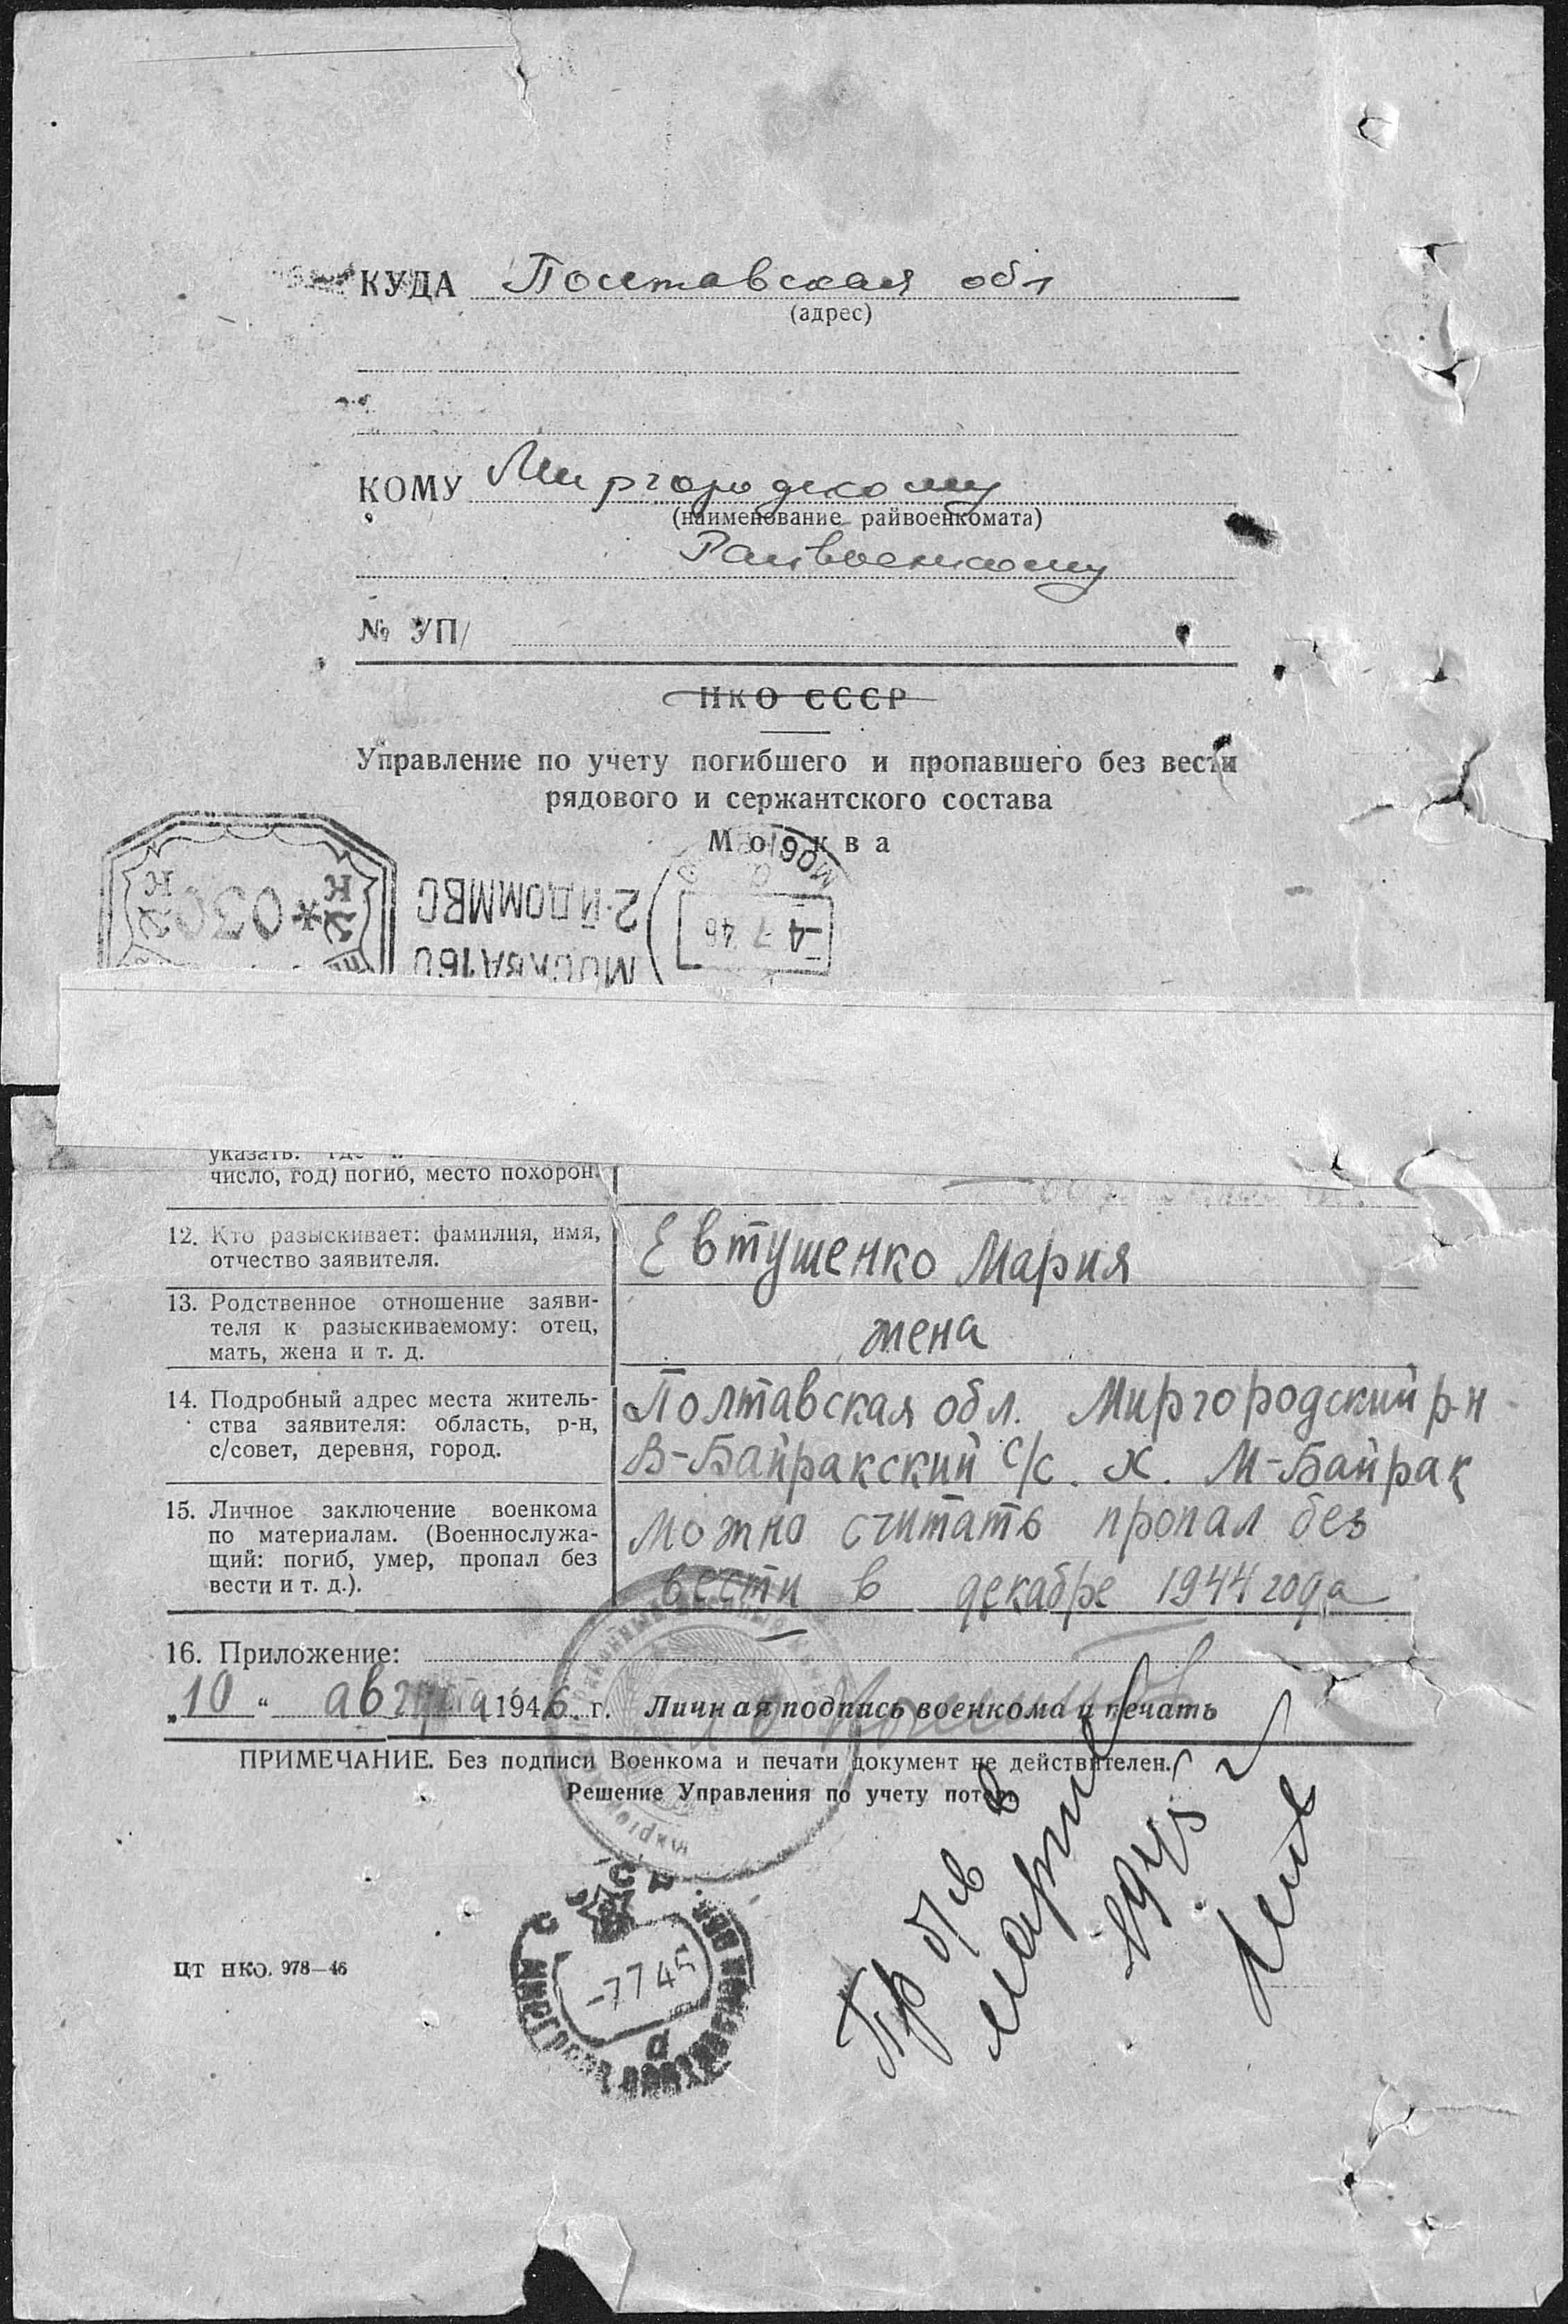 КУДА Полтавская обл
(адрес)
КОМУ Миргородскому
(наименование райвоенкомата)
Райвоенкому
№ УП/
НКО СССР
Управление по учету погибшего и пропавшего без вести
рядового и сержантского состава
Москва
*030
КК
2-Й ДОМ МВС
МОСКВА 160
-4 7 46
число, год) погиб, место похорон.
12. Кто разыскивает: фамилия, имя,
отчество заявителя.
Евтушенко Мария
13. Родственное отношение заяви-
теля к разыскиваемому: отец,
мать, жена и т. д.
жена
14. Подробный адрес места житель-
ства заявителя: область, р-н,
с/совет, деревня, город.
Полтавская обл. Миргородский р-н
В-Байракский с/с. х. М-Байрак
15. Личное заключение военкома
по материалам. (Военнослужа-
щий: погиб, умер, пропал без
вести и т. д.).
можно считать пропал без
вести в декабре 1944 года
16. Приложение:
„10“ августа 1946 г. Личная подпись военкома и печать
ПРИМЕЧАНИЕ. Без подписи Военкома и печати документ не действителен.
Решение Управления по учету потерь
Пр б/в в
марте
ЦТ НКО. 978—46